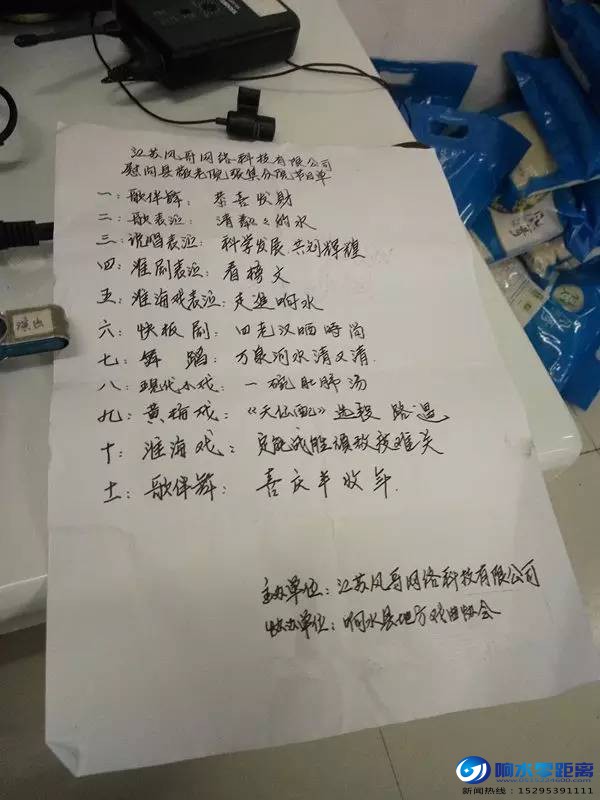 江苏风哥网络科技有限公司
慰问县敬老院张集分院节目单
一：歌伴舞：恭喜发财
二：歌表演：清凌凌的水
三：说唱表演：科学发展共创辉煌
四：淮剧表演：看榜文
五：淮海戏表演：走进响水
六：快板剧：四老汉晒时尚
七：舞蹈：万泉河水清又清
八：现代小戏：一碗肚肺汤
九：黄梅戏：《天仙配》选段 路遇
十：淮海戏：定能战胜顽敌渡难关
十一：歌伴舞：喜庆丰收年.
主办单位：江苏风哥网络科技有限公司
协办单位：响水县地方戏曲协会
演出
响水零距离
新闻热线：15295391111